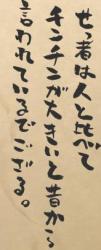 せっ者は人と比べて
チンチンが大きいと昔から
言われているでござる。